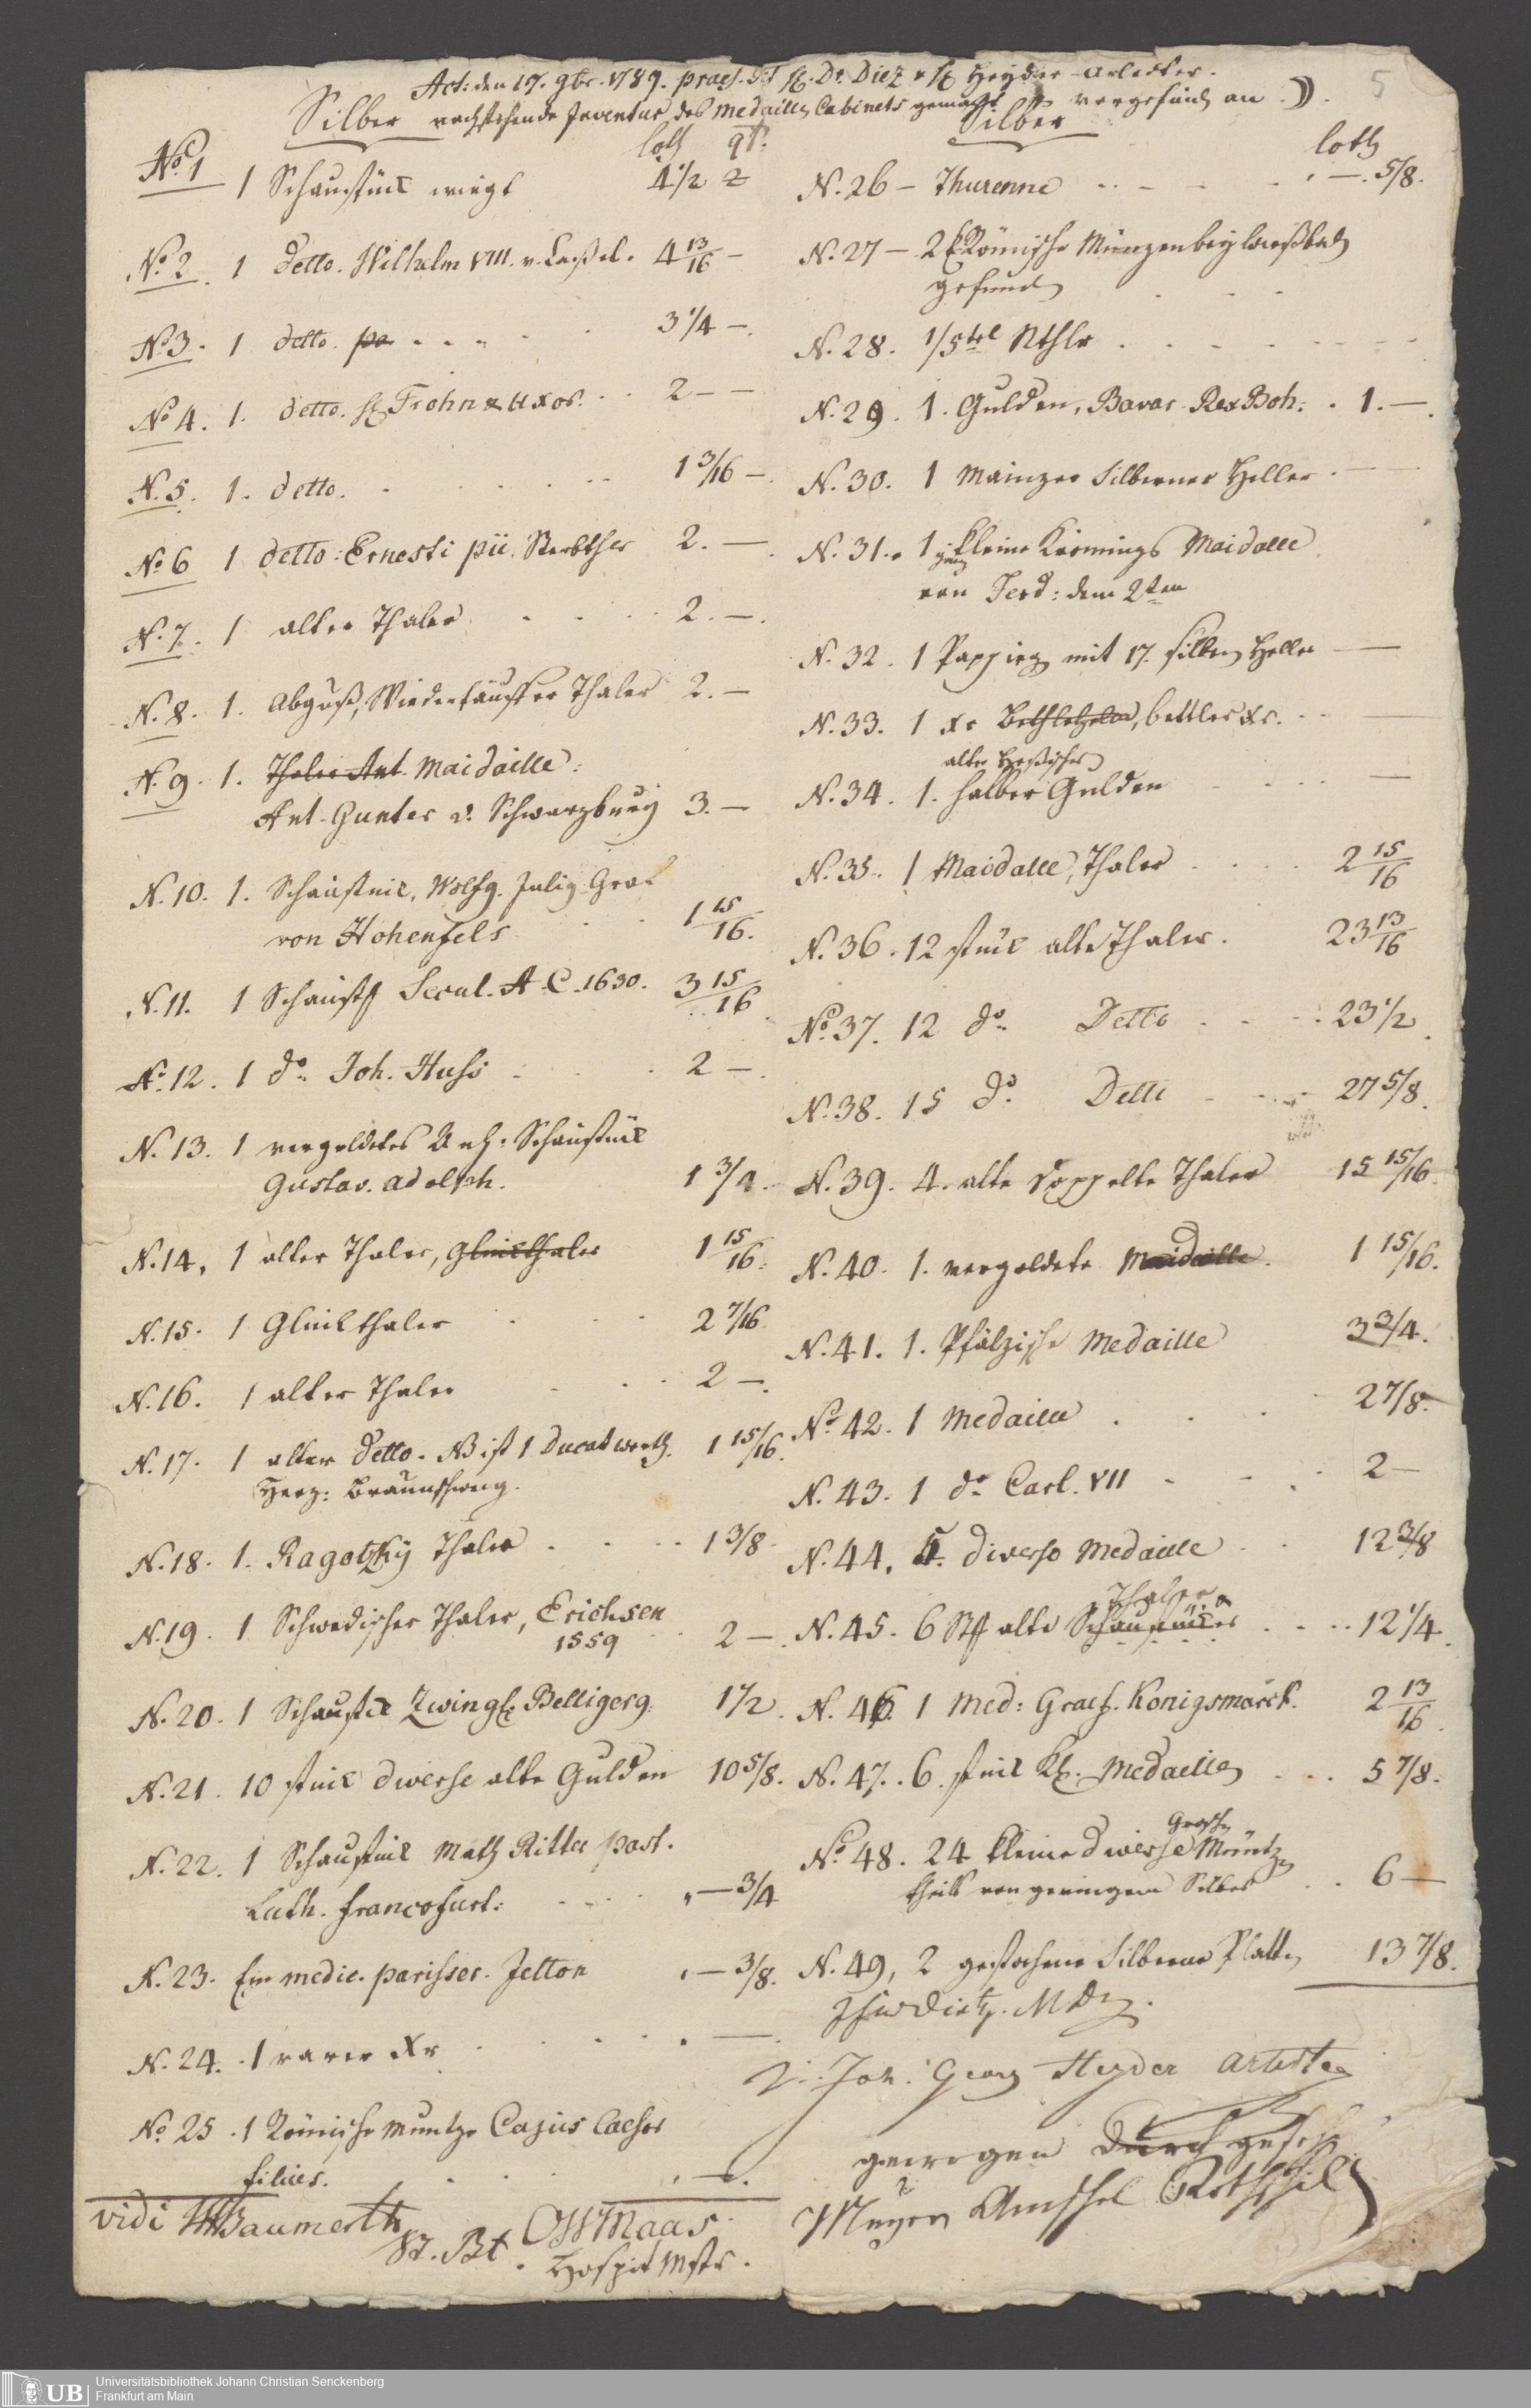 Act: den 17. 9br. 1789. praes. Dr. Diez & Heyder
nachstehende Inventur des Medaillen Cabinets gemacht vorgefunden an
5
Silber
loth qt.
No. 1 1 Schaustük wiegt 4 1/2 2
No. 2. 1 detto. Wilhelm VIII. v. Caßel. 4 13/16 —
No. 3. 1 detto. 3 1/4 —.
No. 4. 1. detto. H. Frohn & Uxor. 2 — —
N. 5. 1. detto. 1 3/16 —.
No. 6 1 detto: Ernesti pii. Sterbthlr 2. —.
N. 7. 1 alter Thaler 2. —.
N. 8. 1. Abguß, Wiedertäuffer Thaler 2. —
N. 9. 1. Thaler Ant. Maidaille:
Ant. Gunter v. Schwarzburg 3. —
N. 10. 1. Schaustük, Wolfg. Julig Graf
von Hohenfels 1 15/16.
N. 11. 1 Schaust. Secul. A. C. 1630. 3 15/16
N. 12. 1 do. Joh. Huss 2 —.
N. 13. 1 vergoldetes Schaustük
Gustav. adolph. 1 3/4.
N. 14, 1 alter Thaler, Glückthaler 1 15/16.
N. 15. 1 Glückthaler 2 7/16
N. 16. 1 alter Thaler 2 —.
N. 17. 1 alter detto. NB ist 1 Ducat werth. 1 15/16.
Herz: Braunschweig.
N. 18. 1. Ragotzky Thaler 1 3/8.
N. 19. 1 Schwedischer Thaler, Erichsen
1559 2 —.
N. 20. 1 Schaustük Zwingl. 1 1/2.
N. 21. 10 stük diverse alte Gulden 10 5/8.
N. 22. 1 Schaustük Math Ritter past.
Luth. francofurt: — 3/4
N. 23. Ein medic. parisser. Jetton — 3/8.
N. 24. 1 rarer Xr —.
No. 25. 1 Römische Muntze Cajus Caesar
filius. —.
vidi Baumerth
St. Bt.
Maas
Hospit Mstr.
Silber
loth
N. 26 — Thurenne — 5/8.
N. 27 — 2 Römische Münzen bey
gefunden
N. 28. 1/5tel Rthlr
N. 29. 1. Gulden, Bavar. Rex Boh: 1. —.
N. 30. 1 Mainzer Silberner Heller
N. 31. 1 ganz kleine Krönungs Maidalle
von Ferd: dem 2ten
N. 32. 1 Pappier mit 17. silbern Heller —
N. 33. 1 xr Bethlehem, bettler xr. —
alter Heßischer
N. 34. 1. halber Gulden —
N. 35. 1 Maidalle, Thaler 2 15/16
N. 36. 12 stük alte Thaler. 23 13/16
No. 37. 12 do. Detto 23 1/2.
N. 38. 15 do. Detto 27 5/8.
N. 39. 4. alte doppelte Thaler 15 15/16.
N. 40. 1. vergoldete Maidaille. 1 15/16.
N. 41. 1. Pfälzische Medaille 3 3/4.
No. 42. 1 Medaille 2 7/8.
N. 43. 1 do. Carl. VII 2 —
N. 44, 5. diverse Medaille 12 3/8
Thaler
N. 45. 6 Stk alte Schaustücker 12 1/4.
N. 46. 1 Med: Graef. Königsmarck. 2 13/16.
N. 47. 6. stük Kl. Medaillen 5 7/8.
Groschen
No. 48. 24 kleine diverse Müntzen
theils von geringem Silber 6 —
N. 49, 2 gestochene Silberne Platten 13 7/8.
Dietz. MDr.
Joh: Georg Heyder
gewogen durch
Mayer Amschel Rothschild
UB Universitätsbibliothek Johann Christian Senckenberg
Frankfurt am Main